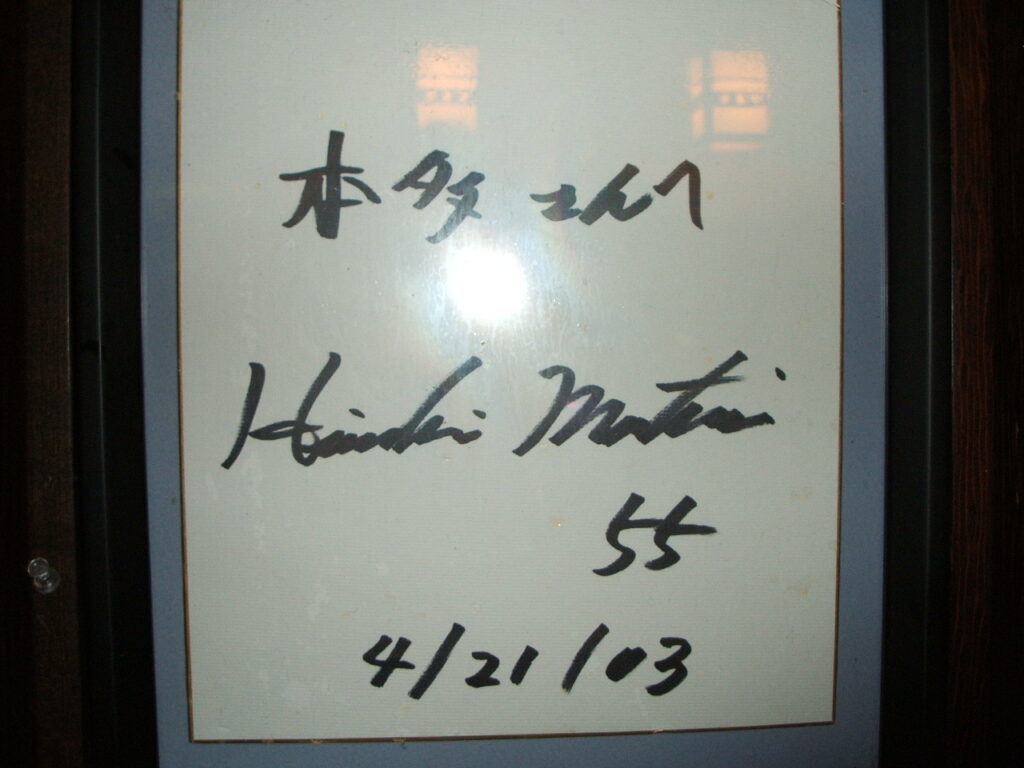 本多さんへ
Hideki Matsui
55
4/21/03